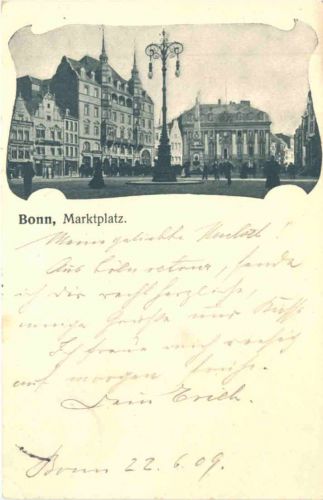 Bonn, Marktplatz.
Meine geliebte
Aus Köln retour, sende
ich dir recht herzliche,
innige Grüsse und Kuss
Ich freue mich riesig
auf morgen früh.
Dein Erich.
Bonn 22.6.09.